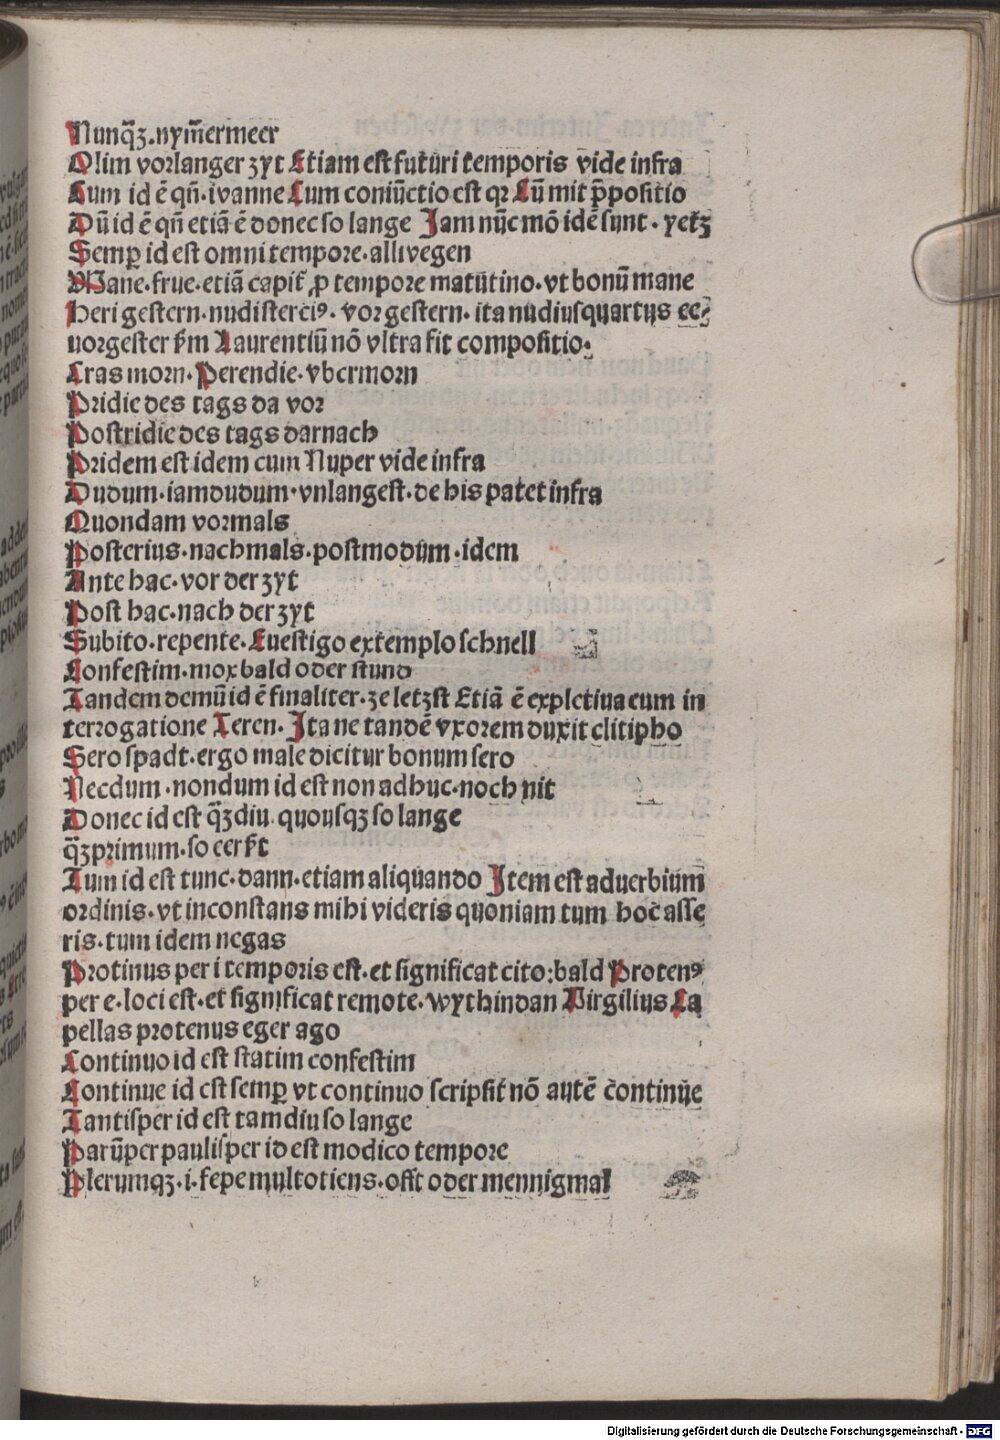 Nunq̄ꝫ.nym̄ermeer
Olim vorlanger zyt Etiam est futuri temporis vide infra
Cum id ē qn̄·ivanne Cum coniūctio est qꝛ Cū mit p̄positio
Dū id ē qn̄ etiā ē donec so lange Jam nūc mō idē sunt·yetz
Semꝑ id est omni tempore·allwegen
Mane·frue·etiā capiť ꝓ tempore matutino·vt bonū mane
Heri gestern·nudistercíꝰ·vorgestern·ita nudiusquartus ee
uorgester ẜm Laurentiū nō vltra fit compositio·
Cras morn·Perendie·vbermorn
Pridie des tags da vor
Postridie des tags darnach
Pridem est idem cum Nuper vide infra
Dudum·iamdudum·vnlangest·de his patet infra
Quondam vormals
Posterius·nachmals·postmodum·idem
Ante hac·vor der zyt
Post hac·nach der zyt
Subito·repente·Euestigo extemplo schnell
Confestim·mox bald oder stund
Tandem demū id ē finaliter·ze letzst Etiā ē expletiua cum in
terrogatione Teren·Ita ne tandē vxorem duxit clitipho
Sero spadt·ergo male dicitur bonum sero
Necdum·nondum id est non adhuc·noch nit
Donec id est q̄ꝫdiu quousqꝫ so lange
q̄ꝫprimum·so eerst
Tum id est tunc·dann·etiam aliquando Item est aduerbium
ordinis·vt inconstans mihi videris quoniam tum hoc asse
ris·tum idem negas
Protinus per i temporis est·et significat cito:bald Protenꝰ
per e·loci est·et significat remote·wythindan Virgilius Ca
pellas protenus eger ago
Continuo id est statim confestim
Continue id est semꝑ vt continuo scripsit nō autē continue
Tantisper id est tamdiu so lange
Parūper paulisper id est modico tempore
Plerumqꝫ·i·sepe multotiens·offt oder mennigmal
Digitalisierung gefördert durch die Deutsche Forschungsgemeinschaft - DFG